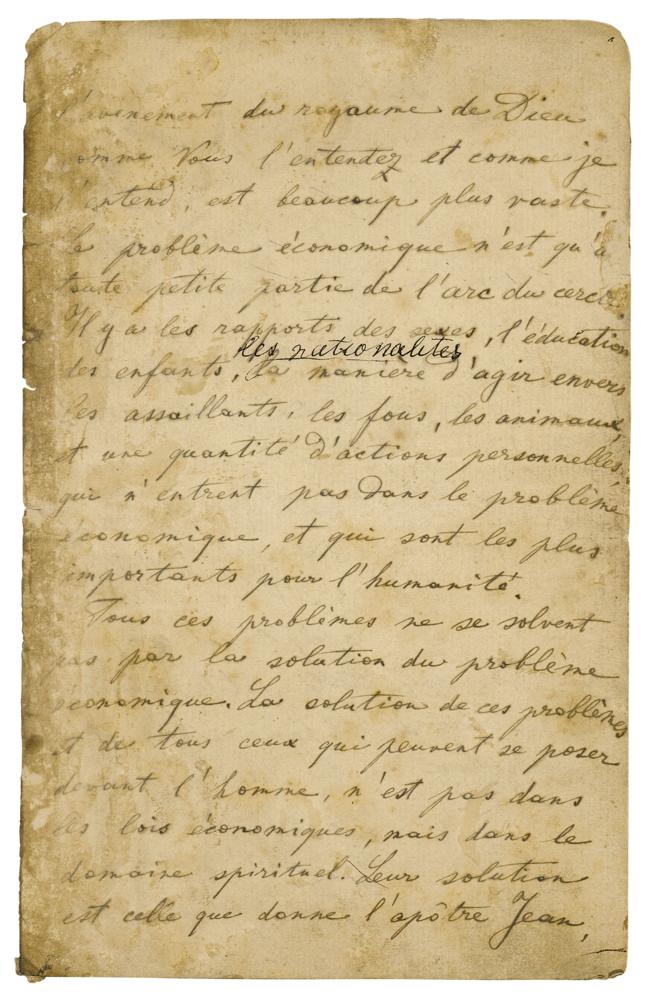 l'avènement du royaume de Dieu
comme Vous l'entendez et comme je
l'entend, est beaucoup plus vaste.
Le problème économique n'est qu'a
toute petite partie de l'arc du cercle.
Il y a les rapports des sexes, l'éducation
les nationalités
des enfants, la manière d'agir envers
les assaillants, les fous, les animaux,
et une quantité d'actions personnelles,
qui n'entrent pas dans le problème
économique, et qui sont les plus
importants pour l'humanité.
Tous ces problèmes ne se solvent
pas par la solution du problème
économique. La solution de ces problèmes
et de tous ceux qui peuvent se poser
devant l'homme, n'est pas dans
les lois économiques, mais dans le
domaine spirituel. Leur solution
est celle que donne l'apôtre Jean,